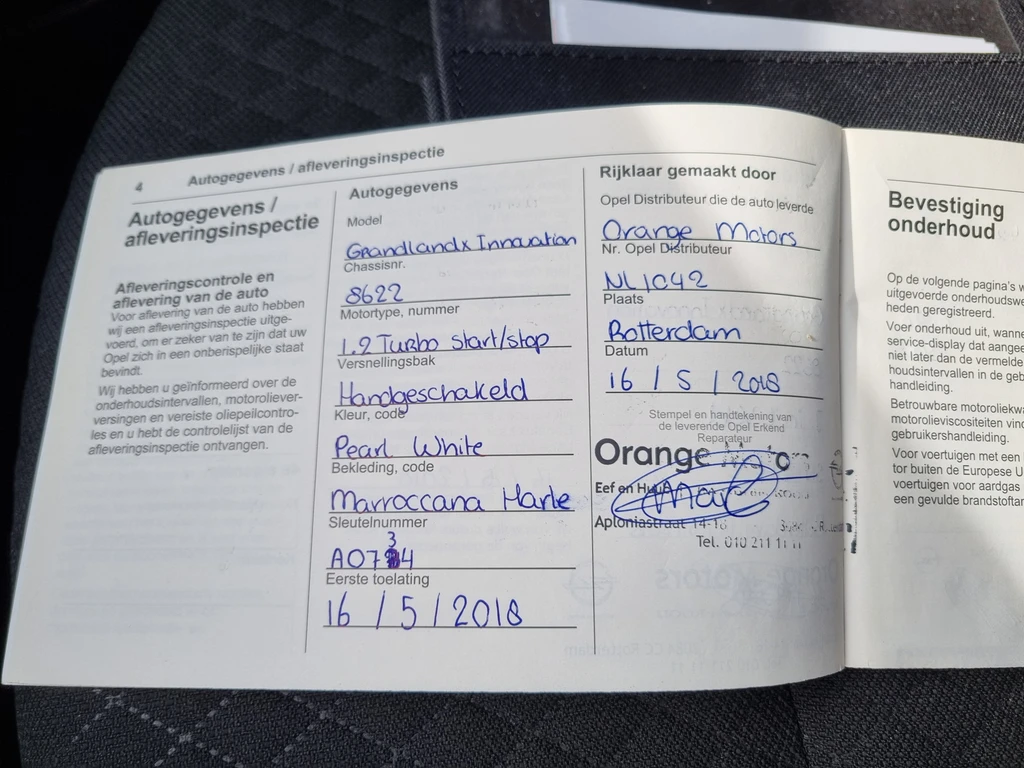 4
Autogegevens / afleveringsinspectie
Autogegevens /
afleveringsinspectie
Afleveringscontrole en
aflevering van de auto
Voor aflevering van de auto hebben
wij een afleveringsinspectie uitge-
voerd, om er zeker van te zijn dat uw
Opel zich in een onberispelijke staat
bevindt.
Wij hebben u geïnformeerd over de
onderhoudsintervallen, motoroliever-
versingen en vereiste oliepeilcontro-
les en u hebt de controlelijst van de
afleveringsinspectie ontvangen.
Autogegevens
Model
Grandlandx Innovation
Chassisnr.
8622
Motortype, nummer
1.2 Turbo start/stop
Versnellingsbak
Handgeschakeld
Kleur, code
Pearl White
Bekleding, code
Marroccana Harle
Sleutelnummer
A0734
Eerste toelating
16 / 5 / 2018
Rijklaar gemaakt door
Opel Distributeur die de auto leverde
Orange Motors
Nr. Opel Distributeur
NL1042
Plaats
Rotterdam
Datum
16 / 5 / 2018
Stempel en handtekening van
de leverende Opel Erkend
Reparateur
Orange Motor
Eef en
Aploniastraat 14-16
Tel. 010 211 11 11
Bevestiging
onderhoud
Op de volgende pagina's
uitgevoerde
heden geregistreerd.
Voer onderhoud uit,
service-display dat
niet later dan de
houdsintervallen in de
handleiding.
Betrouwbare
motorolieviscositeiten
gebruikershandleiding.
Voor voertuigen met een
tor buiten de Europese
voertuigen voor aardgas
een gevulde